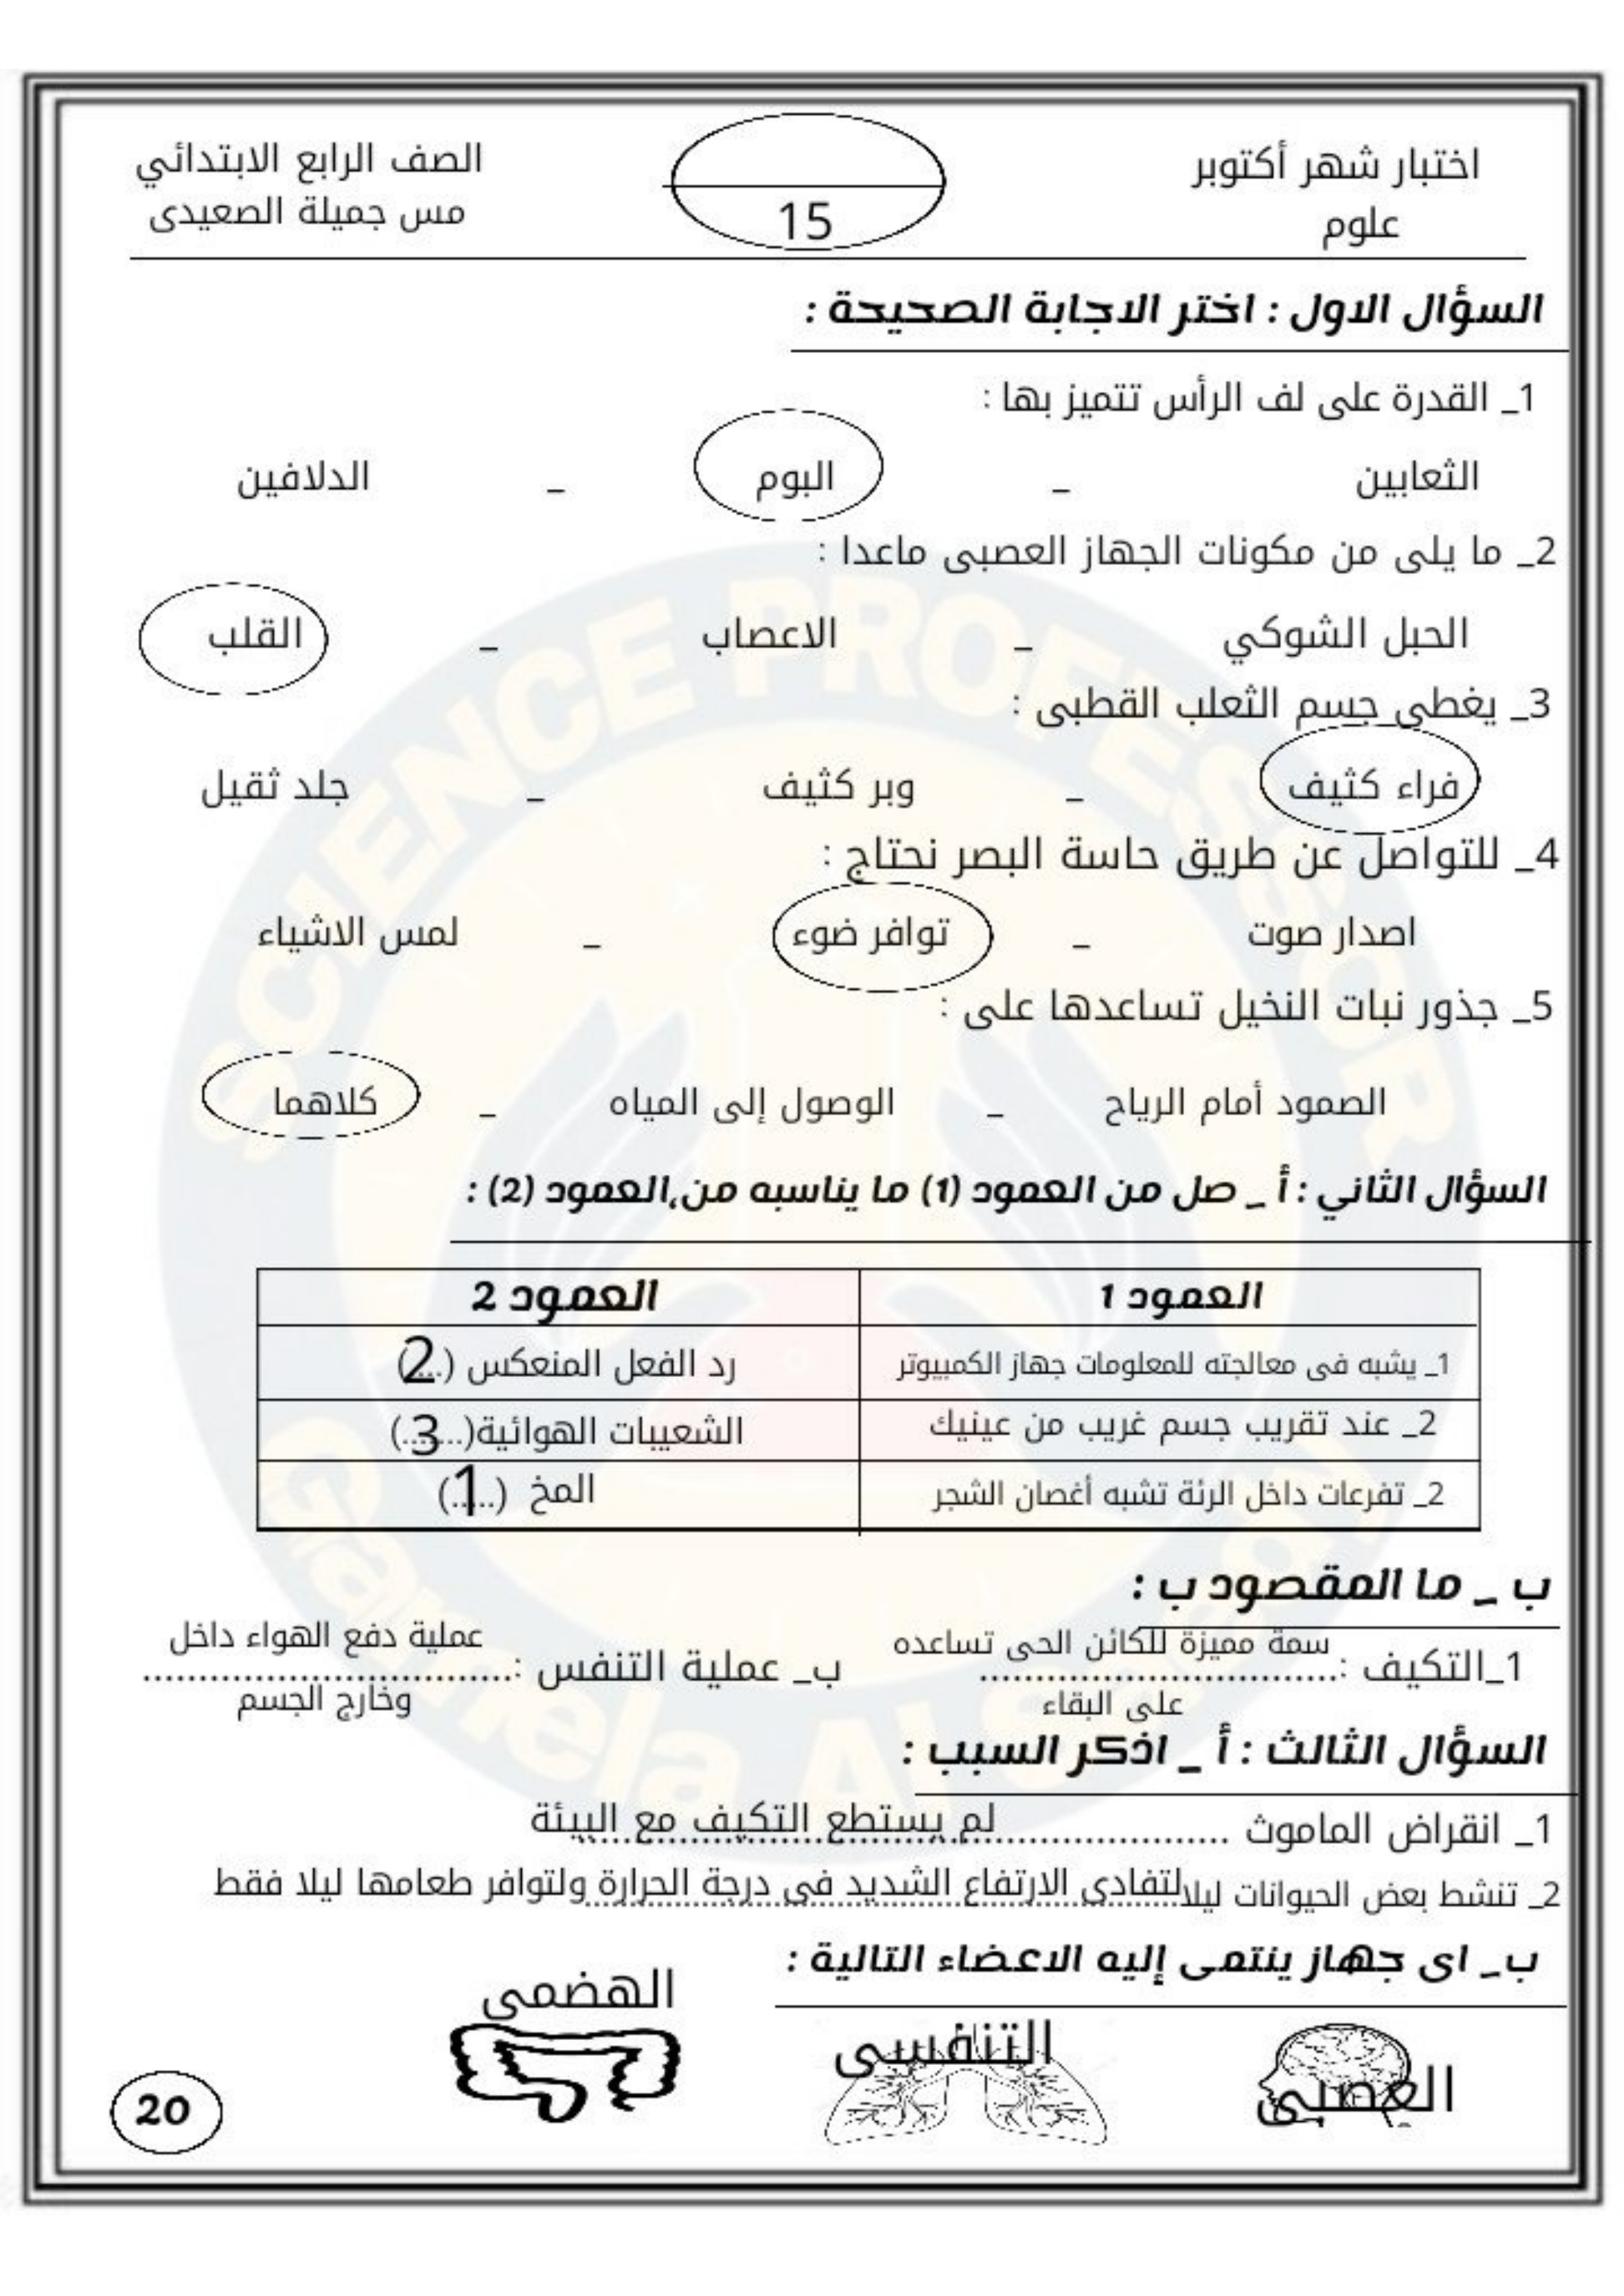 اختبار شهر أكتوبر
علوم
15
الصف الرابع الابتدائي
مس جميلة الصعيدى
السؤال الاول : اختر الاجابة الصحيحة :
1_ القدرة على لف الرأس تتميز بها :
الثعابين _ البوم _ الدلافين
2_ ما يلى من مكونات الجهاز العصبى ماعدا :
الحبل الشوكي _ الاعصاب _ القلب
3_ يغطى جسم الثعلب القطبى :
فراء كثيف _ وبر كثيف _ جلد ثقيل
4_ للتواصل عن طريق حاسة البصر نحتاج :
اصدار صوت _ توافر ضوء _ لمس الاشياء
5_ جذور نبات النخيل تساعدها على :
الصمود أمام الرياح _ الوصول إلى المياه _ كلاهما
السؤال الثاني : أ _ صل من العمود (1) ما يناسبه من،العمود (2) :
العمود 1 العمود 2
1_ يشبه فى معالجته للمعلومات جهاز الكمبيوتر رد الفعل المنعكس (..2..)
2_ عند تقريب جسم غريب من عينيك الشعيبات الهوائية(...3..)
2_ تفرعات داخل الرئة تشبه أغصان الشجر المخ (..1..)
ب _ ما المقصود ب :
1_التكيف : سمة مميزة للكائن الحى تساعده
على البقاء
ب_ عملية التنفس : عملية دفع الهواء داخل
وخارج الجسم
السؤال الثالث : أ _ اذكر السبب :
1_ انقراض الماموث ........ لم يستطع التكيف مع البيئة
2_ تنشط بعض الحيوانات ليلا لتفادى الارتفاع الشديد فى درجة الحرارة ولتوافر طعامها ليلا فقط
ب_ اى جهاز ينتمى إليه الاعضاء التالية :
العصبى
التنفسى
الهضمى
20
SCIENCE PROFESSOR